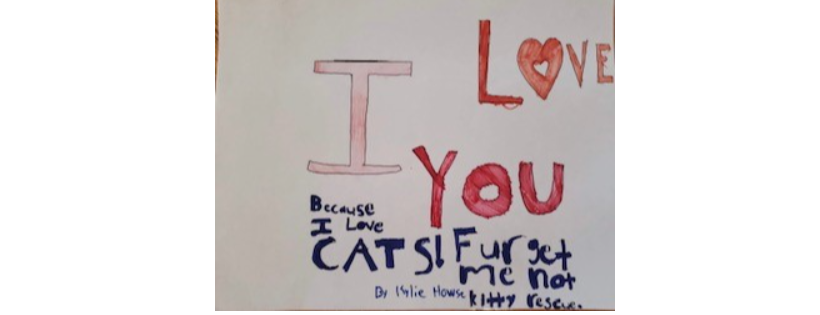 I LOVE
YOU
Because
I Love
CATS!
Furget
me not
kitty rescue.
By Kylie Howse